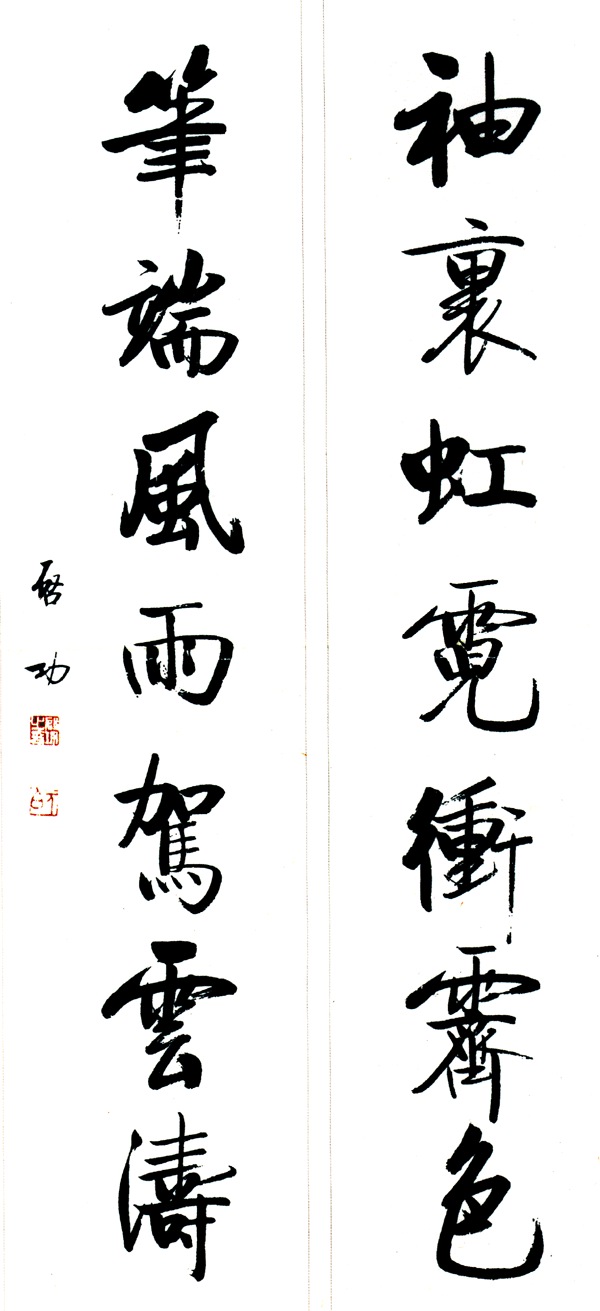 袖裏虹霓衝霽色
筆端風雨駕雲濤
啓功